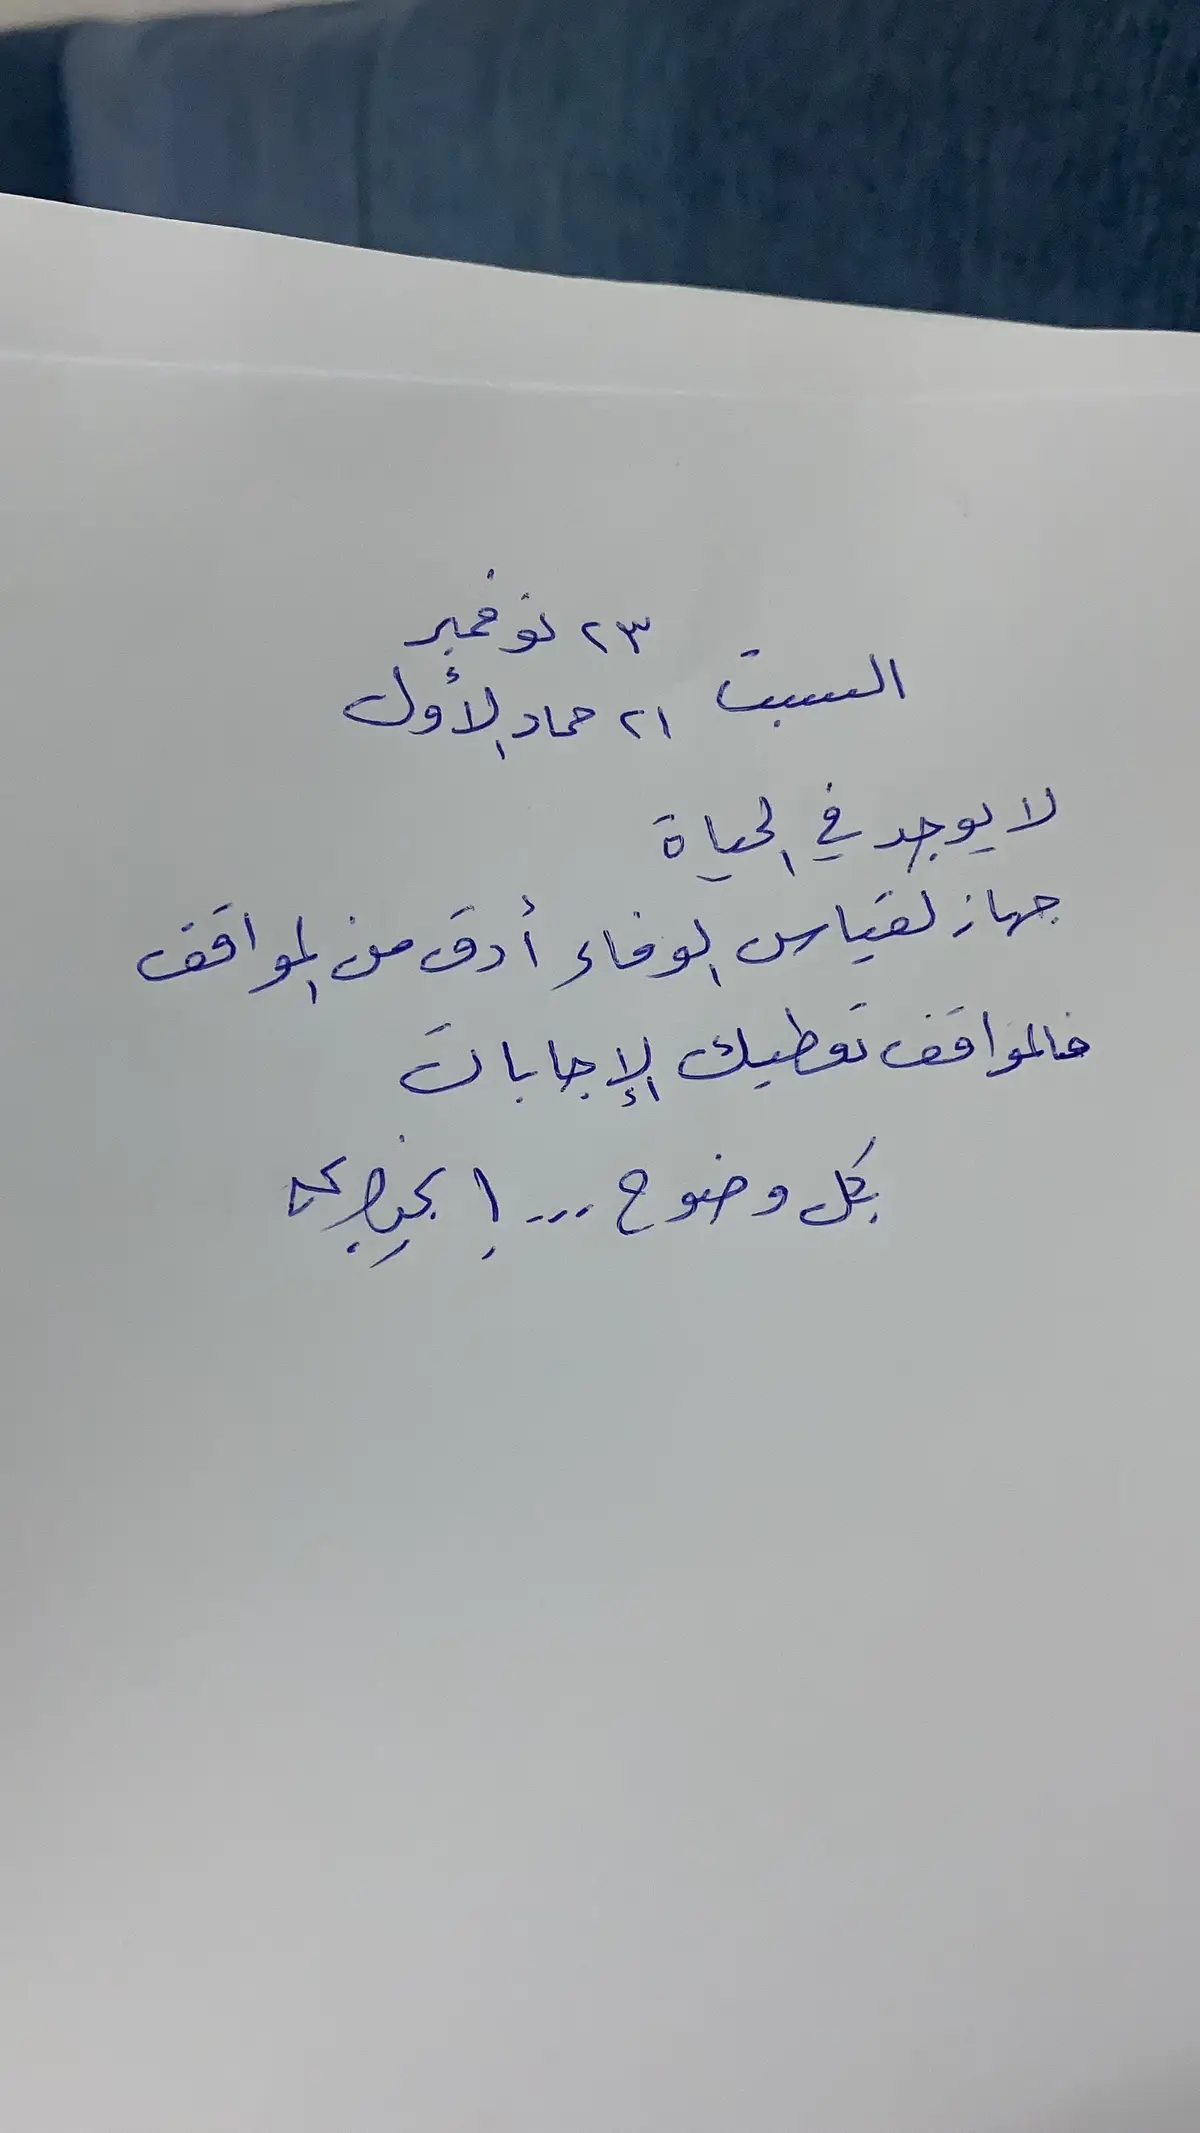 ٢٣ نوفمبر
السبت
٢١ جماد الأول
لا يوجد في الحياة
جهاز لقياس الوفاء أدق من المواقف
فالمواقف تعطيك الإجابات
بكل وضوح ...!